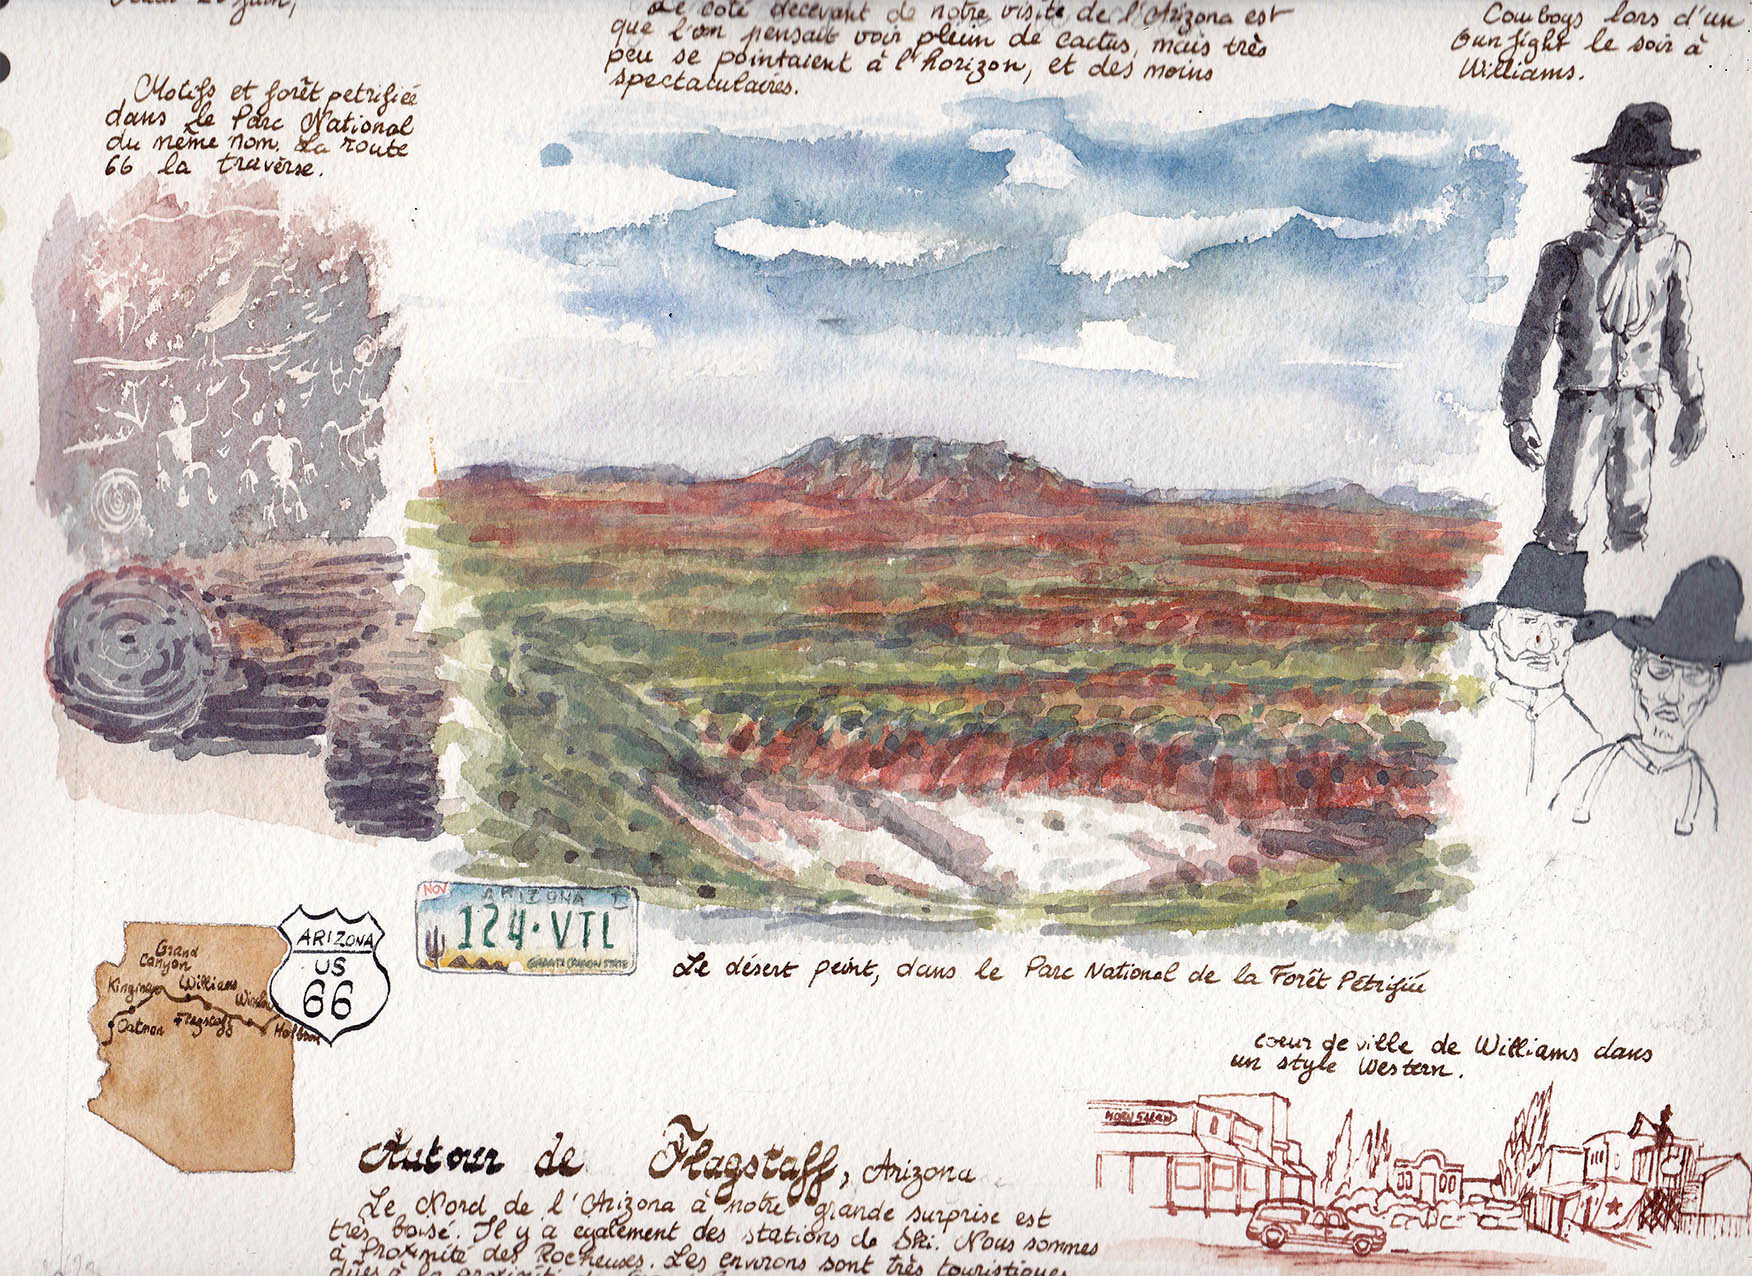 Le côté décevant de notre visite de l'Arizona est
que l'on pensait voir plein de cactus, mais très
peu se pointaient à l'horizon, et des moins
spectaculaires.
Cowboys lors d'un
Gunfight le soir à
Williams.
Motifs et forêt petrifiée
dans le Parc National
du même nom. La route
66 la traverse.
NOV
ARIZONA
124·VTL
GRAND CANYON STATE
Le désert peint, dans le Parc National de la Forêt Pétrifiée
ARIZONA
US
66
Grand
Canyon
Kingman
Williams
Oatman
Flagstaff
coeur de ville de Williams dans
un style Western.
Autour de Flagstaff, Arizona
Le Nord de l'Arizona à notre grande surprise est
très boisé. Il y a egalement des stations de Ski. Nous sommes
à Proximité des Rocheuses. Les environs sont très touristiques